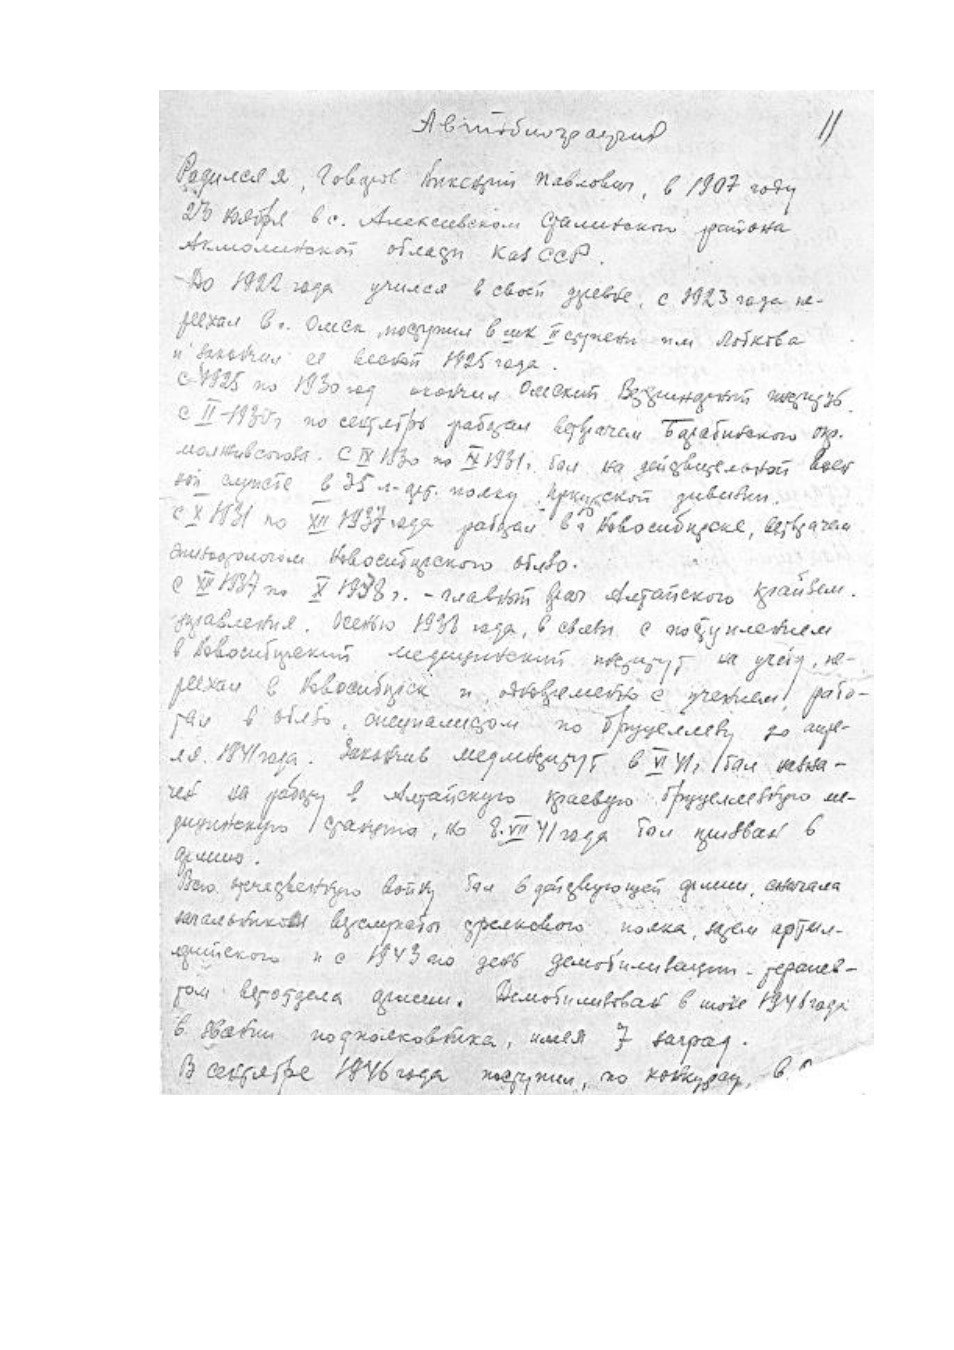 Автобиография
11
Родился я, Говоров Викентий Павлович, в 1907 году
23 ноября в с. Алексеевском Сталинского района
Акмолинской области КазССР.
До 1922 года учился в своей деревне, с 1923 года пе-
реехал в г. Омск, поступил в шк II ступени им Лобкова
и закончил ее весной 1925 года.
С 1925 по 1930 год окончил Омский Ветеринарный институт.
С II-1930 г по сентябрь работал ветврачем Барабинского окр.
молживсоюза. С IX 1930 по IX 1931 г. был на действительной воен
ной службе в 35 полку Иркутской дивизии.
С X 1931 по XII 1937 года работал в г Новосибирске, ветврачем
эпизоотологом Новосибирского облзо.
С XII 1937 по X 1938 г. - главный врач Алтайского крайзем.
управления. Осенью 1938 года, в связи с поступлением
в Новосибирский медицинский институт на учебу, пе-
реехал в Новосибирск и, одновременно с учением, рабо-
тал в облзо, специалистом по бруцеллезу до апре-
ля 1941 года. Закончив мединститут в VI 41 г, был назна-
чен на работу в Алтайскую краевую бруцеллезную ме-
дицинскую станцию, но 8.VII 41 года был призван в
армию.
Всю отечественную войну был в действующей армии, сначала
начальником ветслужбы стрелкового полка, затем артил-
лерийского и с 1943 по день демобилизации - терапев-
том ветотдела армии. Демобилизован в июне 1946 года
в звании подполковника, имея 7 наград.
В сентябре 1946 года поступил, по конкурсу, в